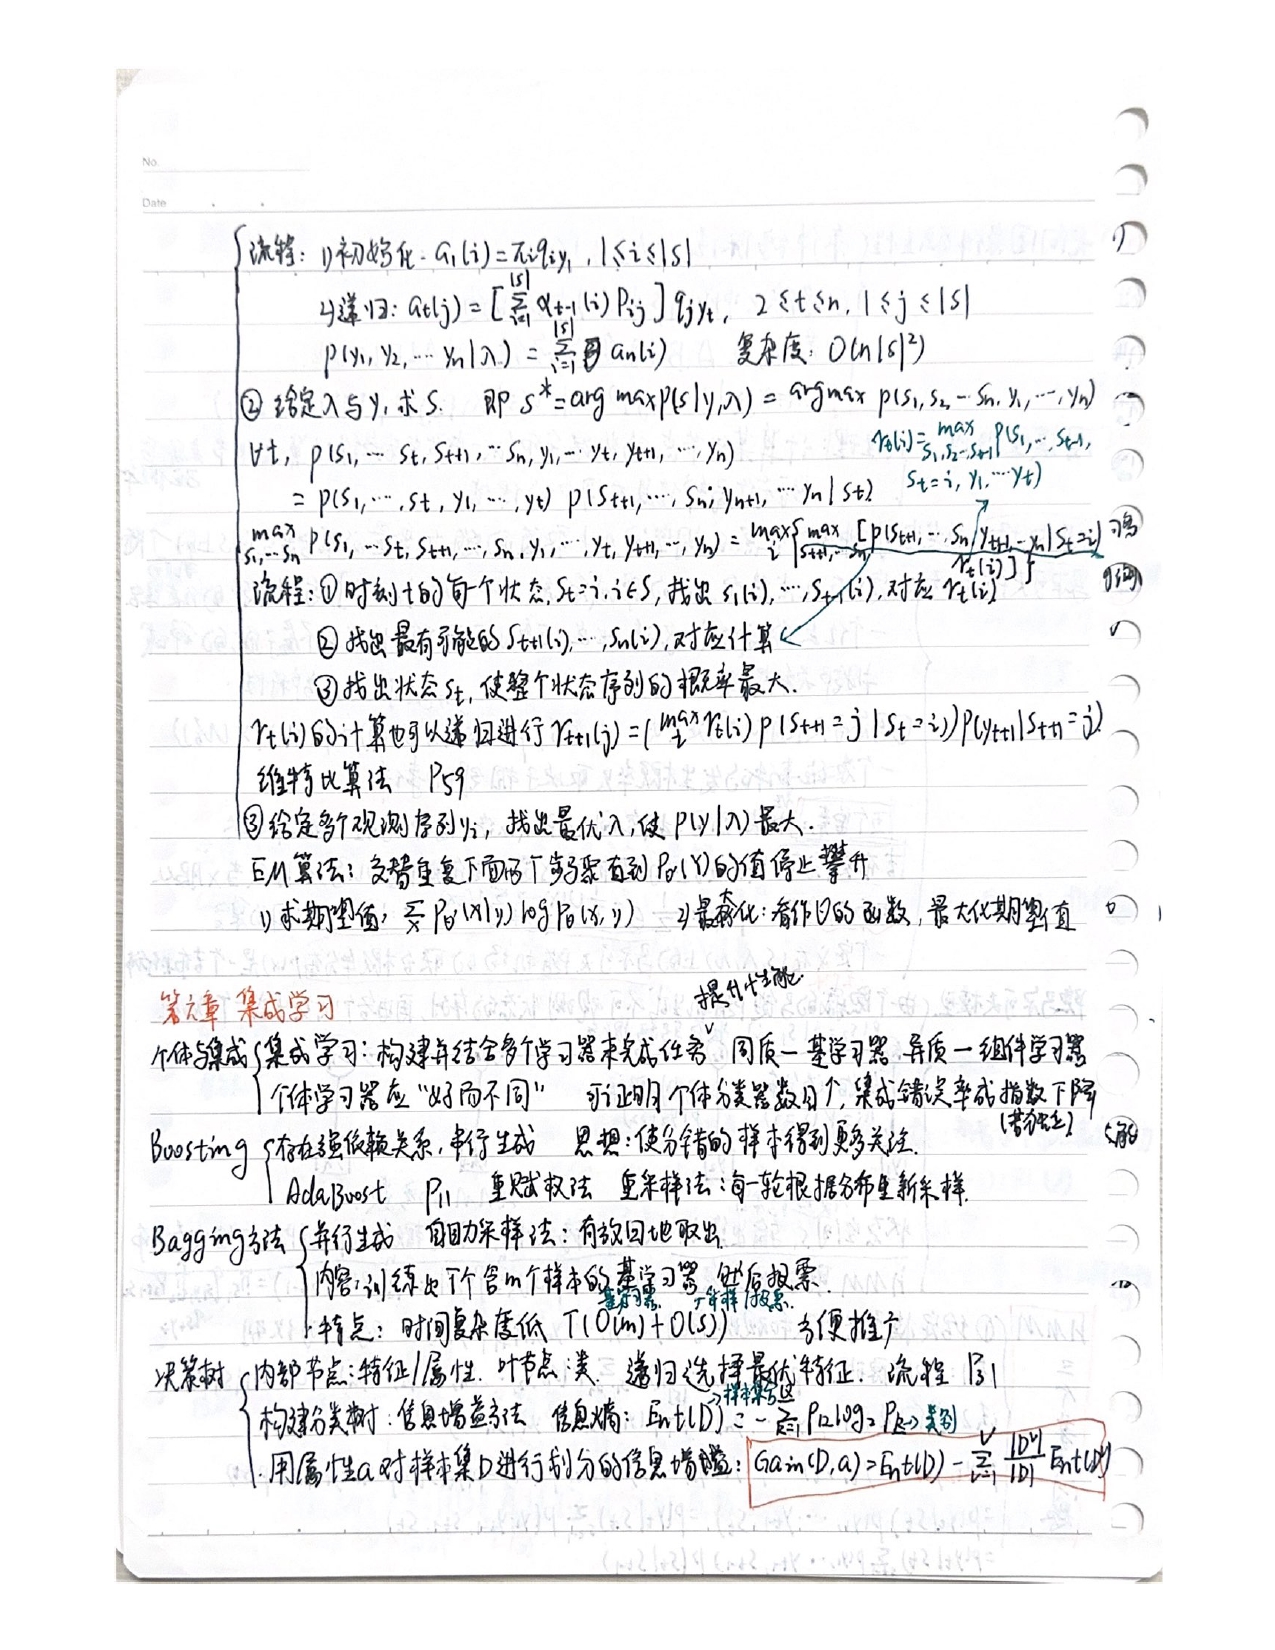 No.
Date
流程: 1)初始化: α₁(i)=πᵢqᵢy₁, 1≤i≤|S|
2)递归: αt(j)=[∑_{i=1}^{|S|} α_{t-1}(i) Pij] qjyt, 2≤t≤n, 1≤j≤|S|
P(y₁, y₂, … yn|λ) = ∑_{i=1}^{|S|} αn(i) 复杂度: O(n|S|²)
② 给定λ与y, 求S. 即 S*=arg max P(S|y,λ) = argmax P(S₁, S₂ … Sn, y₁, …, yn)
∀t, P(S₁, … St, St+1, … Sn, y₁, … yt, yt+1, …, yn)
rt(i)= max_{S₁,S₂…St-1} P(S₁, … St-1,
St=i, y₁, … yt)
= P(S₁, …, St, y₁, …, yt) P(St+1, …, Sn, yn+1, … yn|St)
max_{S₁,…Sn} P(S₁, … St, St+1, …, Sn, y₁, …, yt, yt+1, …, yn) = max_i { max_{St+1,…Sn} [P(St+1, …, Sn, yt+1, … yn|St=i)
rt(i)]}
流程: ①时刻t的每个状态, St=i, i∈S, 找出S₁(i), …, St-1(i), 对应rt(i)
②找出最有可能的St+1(i), …, Sn(i), 对应计算
③找出状态St, 使整个状态序列的概率最大.
rt(i)的计算也可以递归进行 rt+1(j)=(max_i rt(i) P(St+1=j|St=i))P(yt+1|St+1=j)
维特比算法 P59
③给定多个观测序列yi, 找出最优λ, 使P(y|λ)最大.
EM算法: 交替重复下面两个步骤直到Pθ(Y)的值停止攀升
1)求期望值: ∑_x Pθ'(x|y) log Pθ(x, y) 2)最大化: 看作θ的函数, 最大化期望值
提升性能.
第六章 集成学习
个体与集成 集成学习: 构建并结合多个学习器来完成任务 同质—基学习器 异质—组件学习器
个体学习器应“好而不同” 可证明个体分类器数目↑, 集成错误率成指数下降
(若独立)
Boosting 存在强依赖关系, 串行生成 思想: 使分错的样本得到更多关注.
AdaBoost P11 重赋权法 重采样法: 每一轮根据分布重新采样.
Bagging方法 并行生成 自助采样法: 有放回地取出
内容: 训练出T个含m个样本的基学习器 然后投票.
特点: 时间复杂度低 T(O(m)+O(s)) 方便推广
基学习器 投票.
决策树 内部节点: 特征/属性. 叶节点: 类. 递归选择最优特征. 流程 P31
→样本集合
构建分类树: 信息增益方法 信息熵: Ent(D) = -∑_{k=1} Pk log₂ Pk → 类别
用属性a对样本集D进行划分的信息增益: Gain(D,a)=Ent(D) - ∑_{i=1}^{V} |Dᵛ|/|D| Ent(Dᵛ)